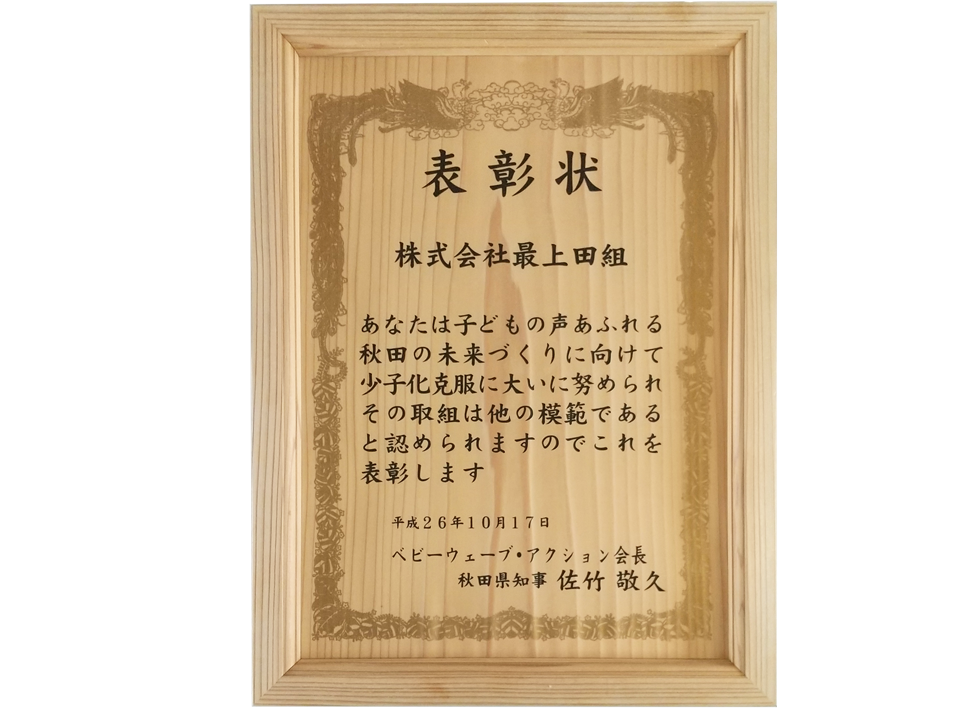 表彰状
株式会社最上田組
あなたは子どもの声あふれる
秋田の未来づくりに向けて
少子化克服に大いに努められ
その取組は他の模範である
と認められますのでこれを
表彰します
平成26年10月17日
ベビーウェーブ・アクション会長
秋田県知事 佐竹 敬久